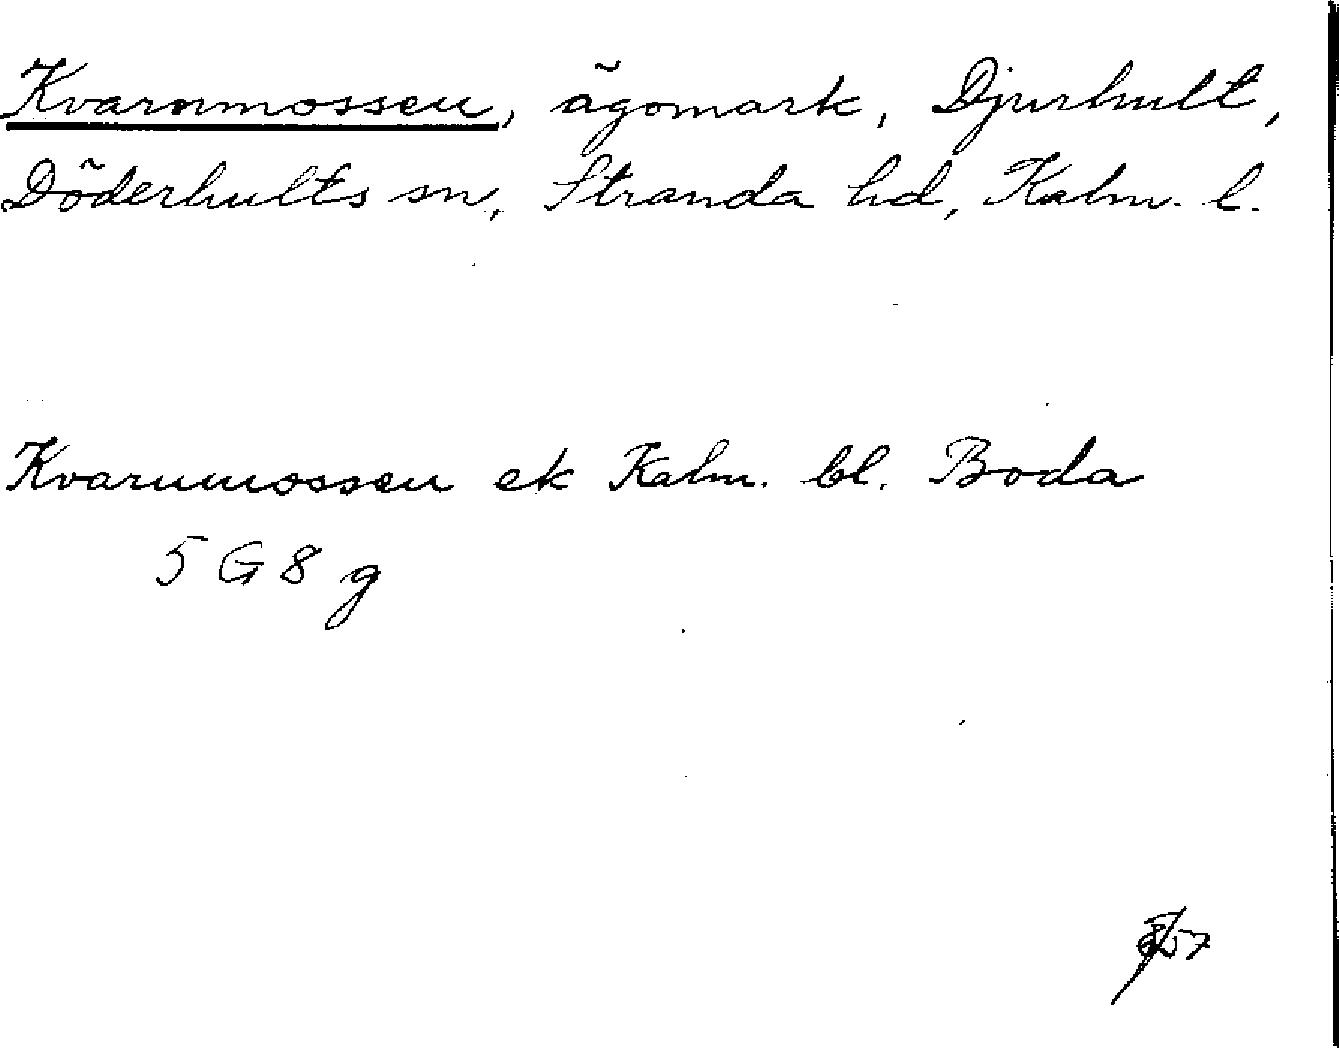 Kvarnmossen, ägomark, Djurhult,
Döderhults sn, Stranda hd, Kalm. l.
Kvarnmossen ek Kalm. bl. Boda
5 G 8 g